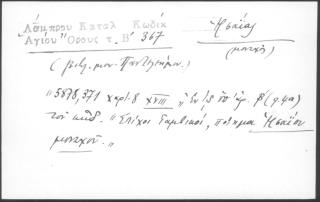 Λάμπρου Καταλ Κώδικ
Ἁγίου Ὄρους τ. Β' 367
Ἡσαΐας
(μοναχός)
(βιβλ. μον. Παντελεήμον.)
"5878,371 χαρτ. 8 XVIII "Ἐν
τοῦ κωδ. "Στίχοι Ἰαμβικοί, ποίημα Ἡσαΐου
μοναχοῦ."